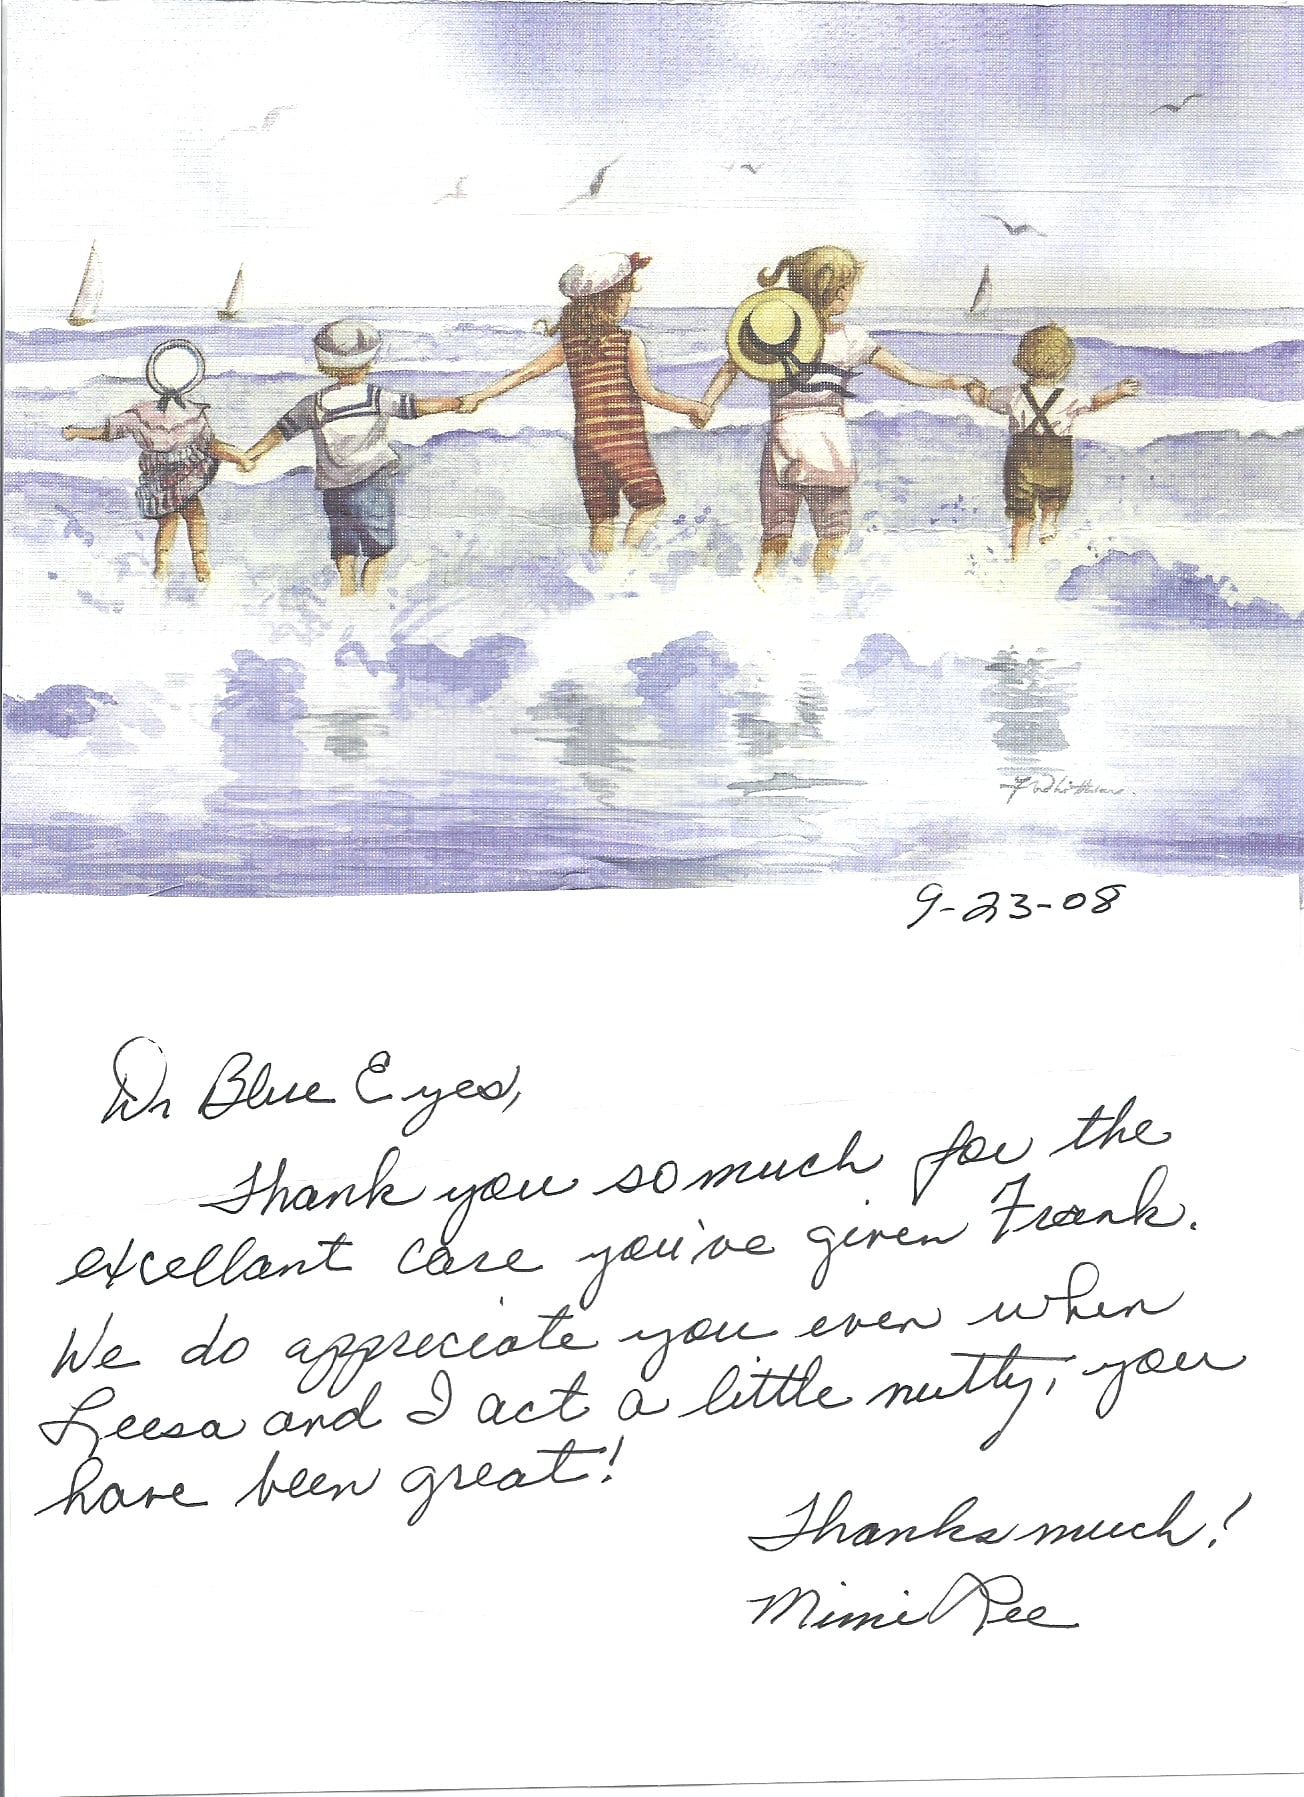 9-23-08
Dr Blue Eyes,
Thank you so much for the
excellant care you've given Frank.
We do appreciate you even when
Leesa and I act a little nutty, you
have been great!
Thanks much!
Mimi Lee